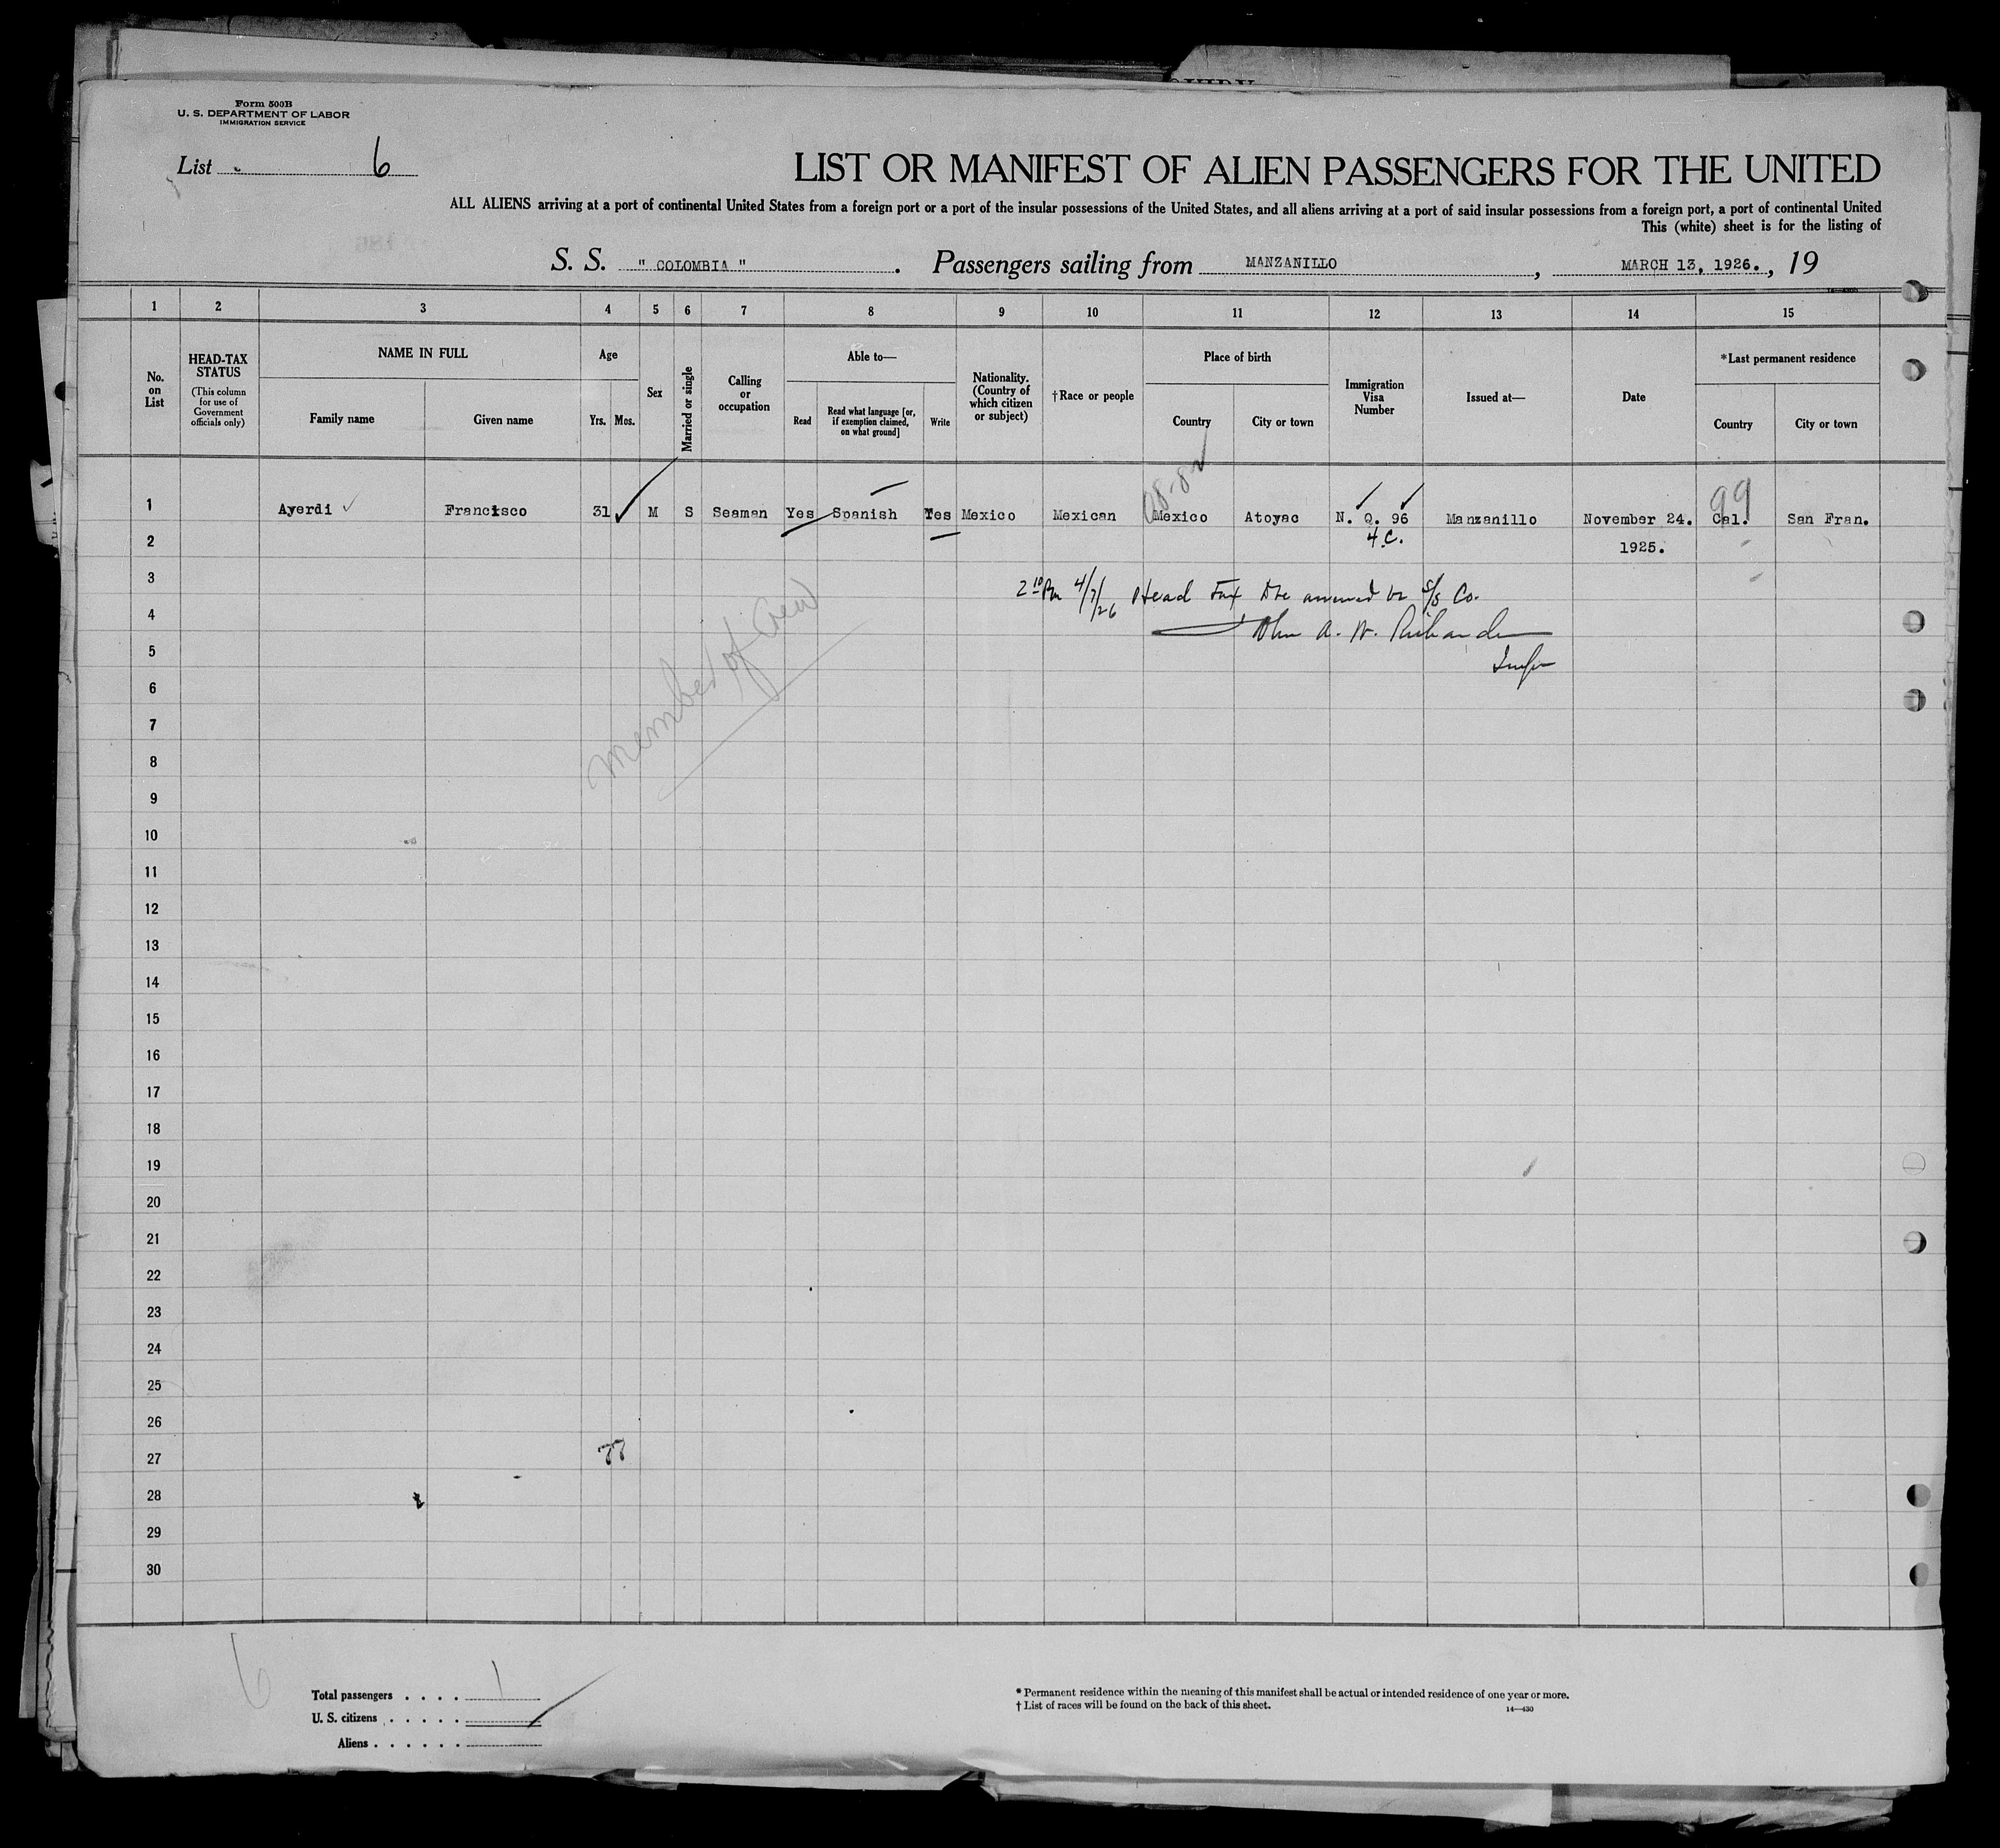 Form 500B
U. S. DEPARTMENT OF LABOR
IMMIGRATION SERVICE
List 6
LIST OR MANIFEST OF ALIEN PASSENGERS FOR THE UNITED
ALL ALIENS arriving at a port of continental United States from a foreign port or a port of the insular possessions of the United States, and all aliens arriving at a port of said insular possessions from a foreign port, a port of continental United
This (white) sheet is for the listing of
S. S. " COLOMBIA " . Passengers sailing from MANZANILLO , MARCH 13, 1926. , 19
1 2 3 4 5 6 7 8 9 10 11 12 13 14 15
No. on List
HEAD-TAX STATUS
(This column for use of Government officials only)
NAME IN FULL
Family name Given name
Age
Yrs. Mos.
Sex
Married or single
Calling or occupation
Able to—
Read
Read what language [or, if exemption claimed, on what ground]
Write
Nationality. (Country of which citizen or subject)
†Race or people
Place of birth
Country City or town
Immigration Visa Number
Issued at—
Date
*Last permanent residence
Country City or town
1 Ayerdi Francisco 31 M S Seaman Yes Spanish Yes Mexico Mexican Mexico Atoyac N. Q. 96 Manzanillo November 24. Cal. San Fran.
99
2 4 C. 1925.
3 2 10 Pm 4/7/26 Head Tax assumed S/S Co.
4 John A. W.
5
6
member of crew
7
8
9
10
11
12
13
14
15
16
17
18
19
20
21
22
23
24
25
26
27
28
29
30
6
Total passengers . . . . 1
U. S. citizens . . . . .
Aliens . . . . . .
* Permanent residence within the meaning of this manifest shall be actual or intended residence of one year or more.
† List of races will be found on the back of this sheet.
14—430